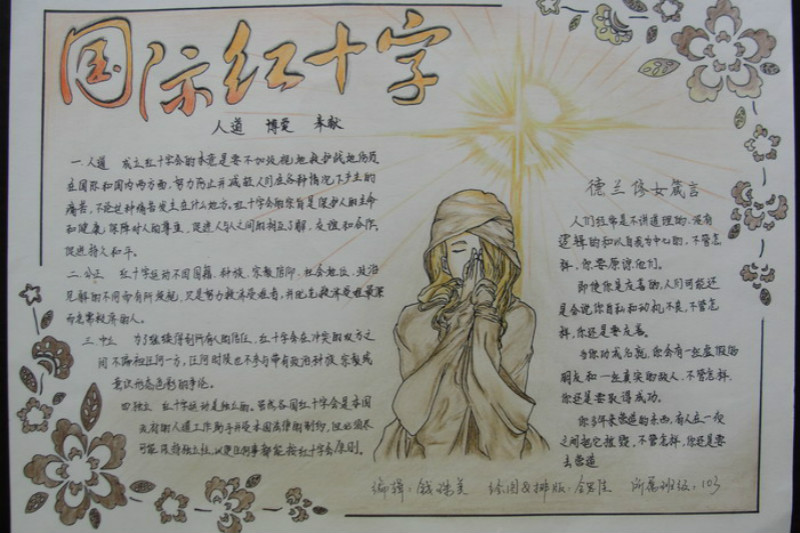 国际红十字
人道 博爱 奉献
一.人道 成立红十字会的本意是要不加歧视地救护战地伤员
在国际和国内两方面,努力防止并减轻人们在各种情况下产生的
痛苦,不论这种痛苦发生在什么地方。红十字会的宗旨是保护人的生命
和健康,保障对人的尊重,促进人与人之间的相互了解、友谊和合作,
促进持久和平。
二.公正 红十字运动不因国籍、种族、宗教信仰、社会地位、政治
见解的不同而有所歧视,只是努力救济受难者,并优先救济受难最深
而急需救济的人。
三.中立 为了继续得到所有人的信任,红十字会在冲突的双方之
间不偏袒任何一方,任何时候也不参与带有政治种族、宗教或
意识形态色彩的争论。
四.独立 红十字运动是独立的。虽然各国红十字会是本国
政府的人道工作助手并受本国法律的制约,但必须尽
可能保持独立性,以便任何事都能按红十字会原则。
德兰修女箴言
人们经常是不讲道理的、没有
逻辑的和以自我为中心的,不管怎
样,你要原谅他们。
即使你是友善的,人们可能还
是会说你自私和动机不良,不管怎
样,你还是要友善。
当你功成名就,你会有一些虚假的
朋友和一些真实的敌人,不管怎样,
你还是要取得成功。
你多年来营造的东西,有人在一夜
之间把它摧毁,不管怎样,你还是要
去营造
编辑:钱珠美 绘图&排版: 所属班级:103